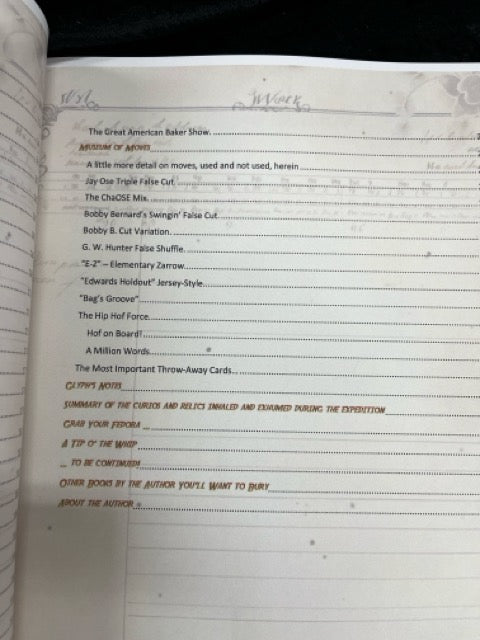 The Great American Baker Show
MUSEUM OF MOVES
A little more detail on moves, used and not used, herein
Jay Ose Triple False Cut
The ChaOSE Mix
Bobby Bernard's Swingin' False Cut
Bobby B. Cut Variation
G. W. Hunter False Shuffle
"E-Z" – Elementary Zarrow
"Edwards Holdout" Jersey-Style
"Bag's Groove"
The Hip Hof Force
Hof on Board!
A Million Words
The Most Important Throw-Away Cards
GLYPH'S NOTES
SUMMARY OF THE CURIOS AND RELICS INHALED AND EXHUMED DURING THE EXPEDITION
GRAB YOUR FEDORA ...
A TIP O' THE WHIP
... TO BE CONTINUED!
OTHER BOOKS BY THE AUTHOR YOU'LL WANT TO BURY
ABOUT THE AUTHOR